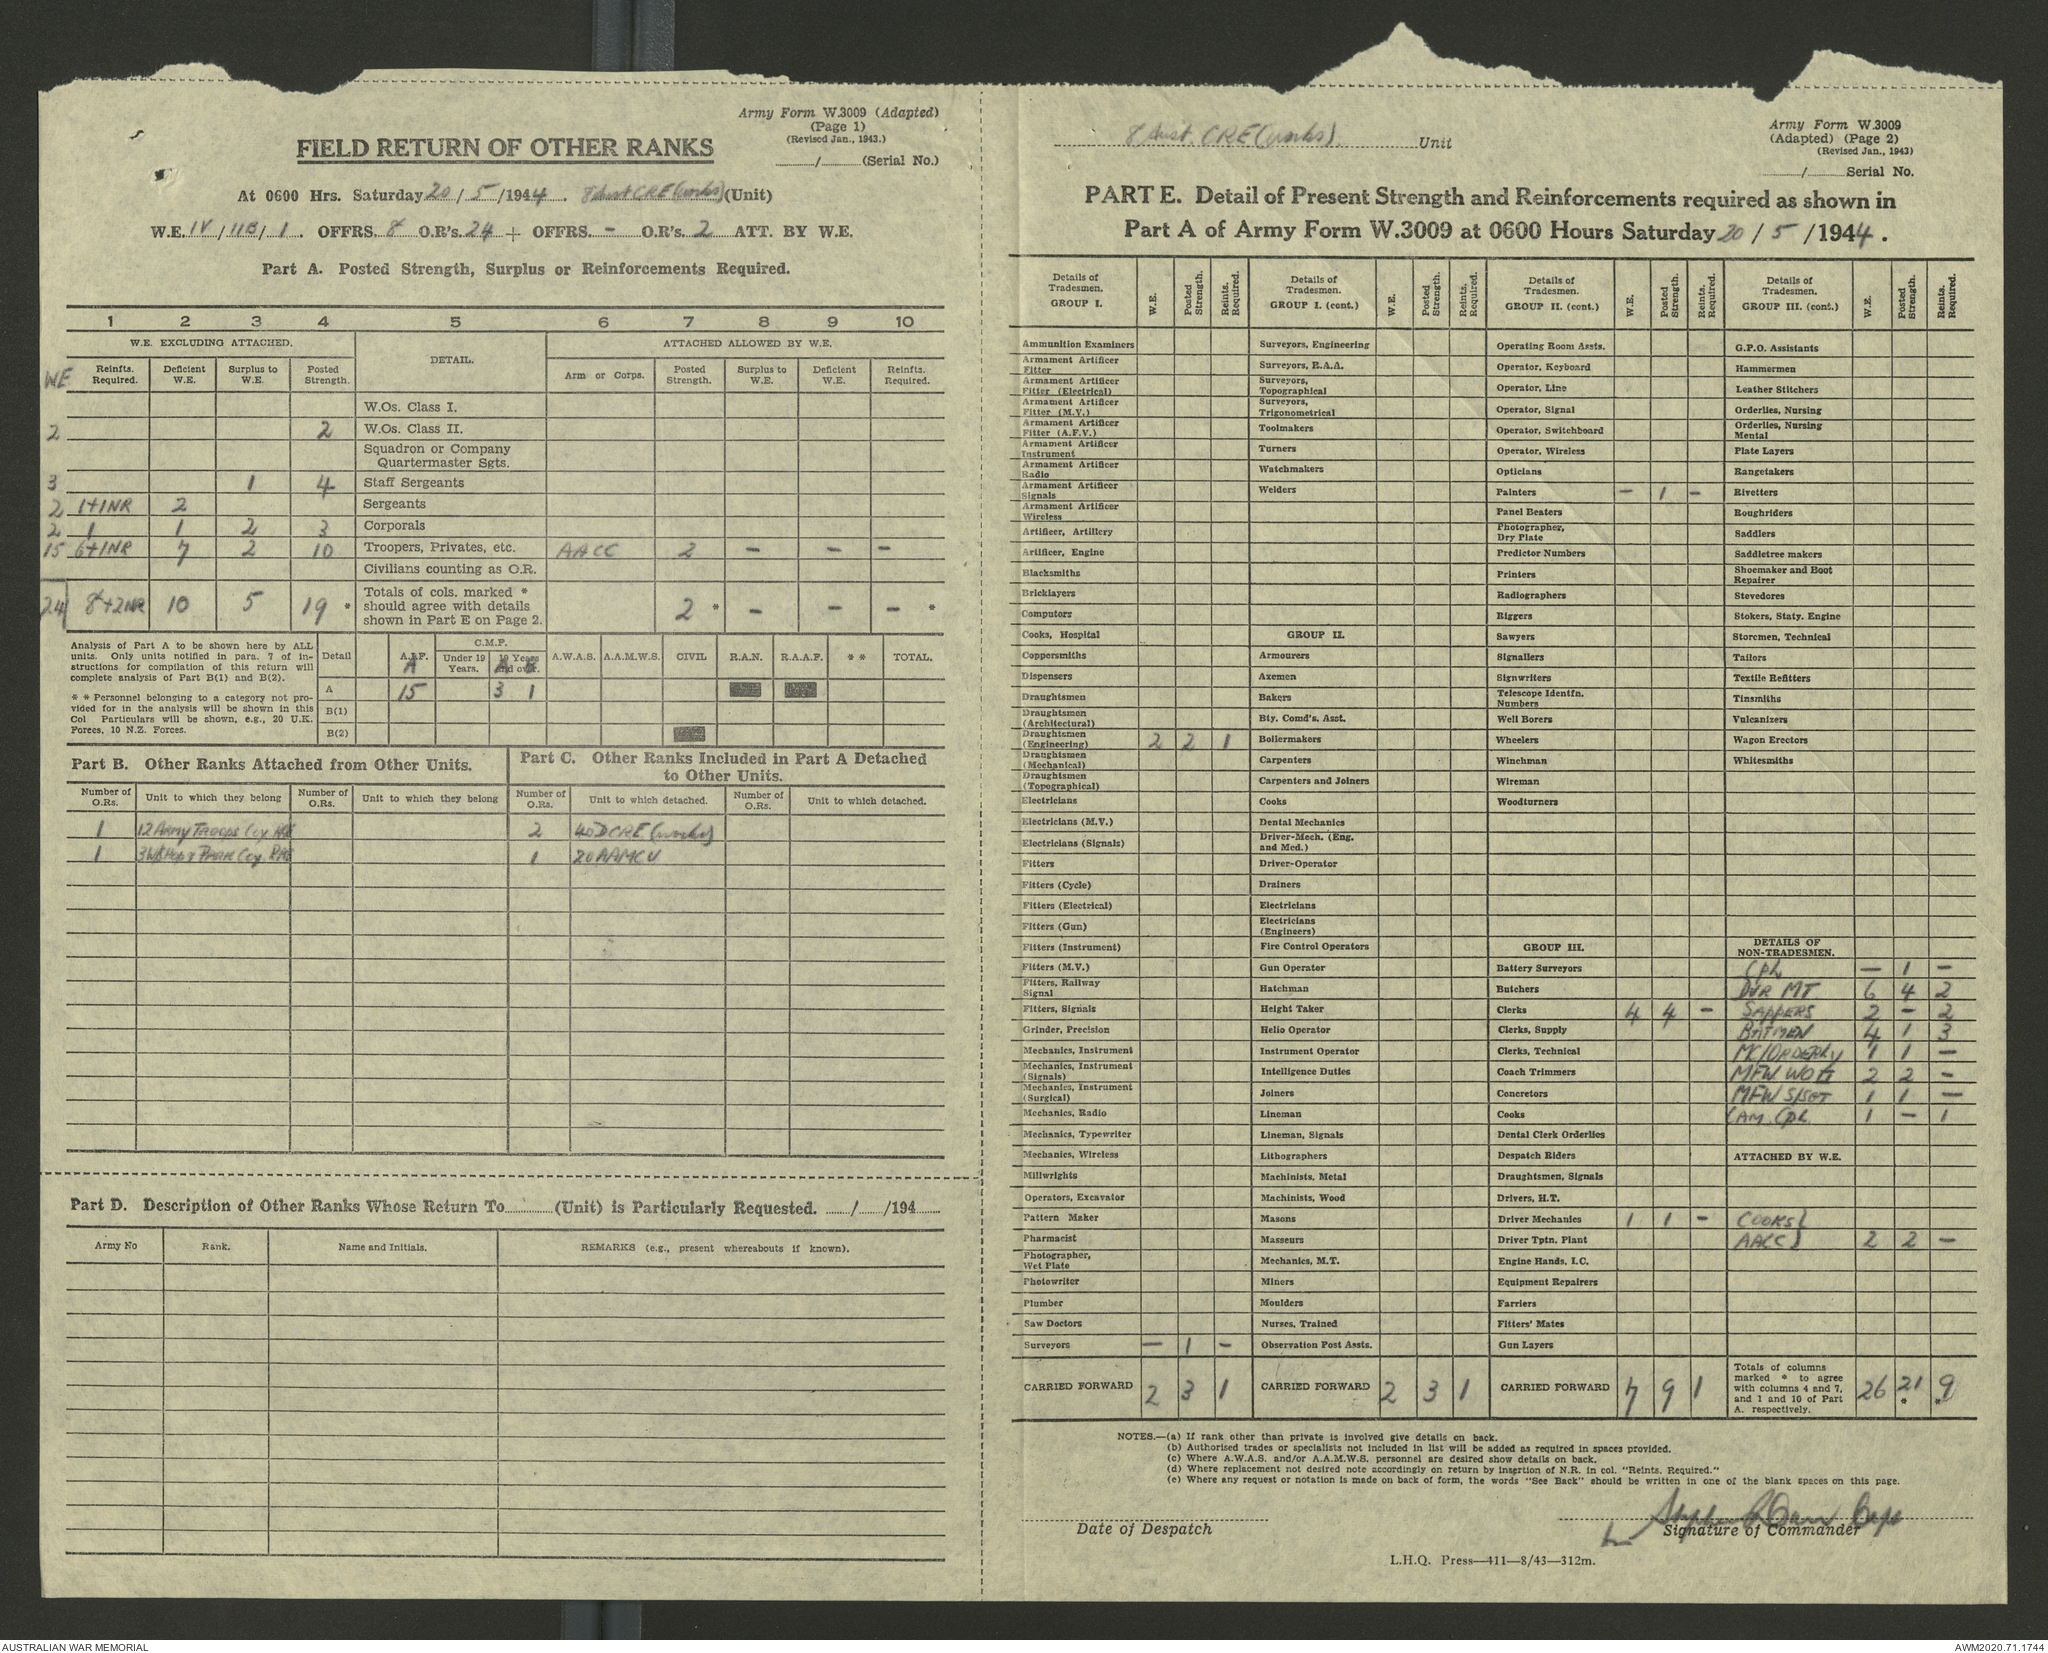 Army Form W.3009 (Adapted)
(Page 1)
(Revised Jan., 1943.)
FIELD RETURN OF OTHER RANKS
/ (Serial No.)
At 0600 Hrs. Saturday 20/5/1944. 8 Aust CRE (works) (Unit)
W.E. IV/11B/1. OFFRS. 8 O.R's. 24 + OFFRS. - O.R's. 2 ATT. BY W.E.
Part A. Posted Strength, Surplus or Reinforcements Required.
1 2 3 4 5 6 7 8 9 10
W.E. EXCLUDING ATTACHED. DETAIL. ATTACHED ALLOWED BY W.E.
WE Reinfts. Required. Deficient W.E. Surplus to W.E. Posted Strength. Arm or Corps. Posted Strength. Surplus to W.E. Deficient W.E. Reinfts. Required.
W.Os. Class I.
2 2 W.Os. Class II.
Squadron or Company Quartermaster Sgts.
3 1 4 Staff Sergeants
2 1+1NR 2 Sergeants
2 1 1 2 3 Corporals
15 6+1NR 7 2 10 Troopers, Privates, etc. AACC 2 - - -
Civilians counting as O.R.
24 8+2NR 10 5 19 * Totals of cols. marked * should agree with details shown in Part E on Page 2. 2 * - - - *
Analysis of Part A to be shown here by ALL units. Only units notified in para. 7 of instructions for compilation of this return will complete analysis of Part B(1) and B(2).
* * Personnel belonging to a category not provided for in the analysis will be shown in this Col Particulars will be shown, e.g., 20 U.K. Forces, 10 N.Z. Forces.
Detail A.I.F. A C.M.F. Under 19 Years. 19 Years and over. A.W.A.S. A.A.M.W.S. CIVIL R.A.N. R.A.A.F. * * TOTAL.
A 15 3 1
B(1)
B(2)
Part B. Other Ranks Attached from Other Units.
Part C. Other Ranks Included in Part A Detached to Other Units.
Number of O.Rs. Unit to which they belong Number of O.Rs. Unit to which they belong Number of O.Rs. Unit to which detached. Number of O.Rs. Unit to which detached.
1 12 Army Troops Coy RAE 2 40 DCRE (works)
1 3 Wkshop & Park Coy RAE 1 20 AAMCU
Part D. Description of Other Ranks Whose Return To (Unit) is Particularly Requested. / /194
Army No Rank. Name and Initials. REMARKS (e.g., present whereabouts if known).
8 Aust. CRE (works). Unit
Army Form W.3009
(Adapted) (Page 2)
(Revised Jan., 1943)
/ Serial No.
PART E. Detail of Present Strength and Reinforcements required as shown in
Part A of Army Form W.3009 at 0600 Hours Saturday 20/5/1944.
Details of Tradesmen. GROUP I. W.E. Posted Strength. Reints. Required.
Ammunition Examiners
Armament Artificer Fitter
Armament Artificer Fitter (Electrical)
Armament Artificer Fitter (M.V.)
Armament Artificer Fitter (A.F.V.)
Armament Artificer Instrument
Armament Artificer Radio
Armament Artificer Signals
Armament Artificer Wireless
Artificer, Artillery
Artificer, Engine
Blacksmiths
Bricklayers
Computors
Cooks, Hospital
Coppersmiths
Dispensers
Draughtsmen
Draughtsmen (Architectural)
Draughtsmen (Engineering) 2 2 1
Draughtsmen (Mechanical)
Draughtsmen (Topographical)
Electricians
Electricians (M.V.)
Electricians (Signals)
Fitters
Fitters (Cycle)
Fitters (Electrical)
Fitters (Gun)
Fitters (Instrument)
Fitters (M.V.)
Fitters, Railway Signal
Fitters, Signals
Grinder, Precision
Mechanics, Instrument
Mechanics, Instrument (Signals)
Mechanics, Instrument (Surgical)
Mechanics, Radio
Mechanics, Typewriter
Mechanics, Wireless
Millwrights
Operators, Excavator
Pattern Maker
Pharmacist
Photographer, Wet Plate
Photowriter
Plumber
Saw Doctors
Surveyors - 1 -
CARRIED FORWARD 2 3 1
Details of Tradesmen. GROUP I. (cont.) W.E. Posted Strength. Reints. Required.
Surveyors, Engineering
Surveyors, R.A.A.
Surveyors, Topographical
Surveyors, Trigonometrical
Toolmakers
Turners
Watchmakers
Welders
GROUP II.
Armourers
Axemen
Bakers
Bty. Comd's. Asst.
Boilermakers
Carpenters
Carpenters and Joiners
Cooks
Dental Mechanics
Driver-Mech. (Eng. and Med.)
Driver-Operator
Drainers
Electricians
Electricians (Engineers)
Fire Control Operators
Gun Operator
Hatchman
Height Taker
Helio Operator
Instrument Operator
Intelligence Duties
Joiners
Lineman
Lineman, Signals
Lithographers
Machinists, Metal
Machinists, Wood
Masons
Masseurs
Mechanics, M.T.
Miners
Moulders
Nurses, Trained
Observation Post Assts.
CARRIED FORWARD 2 3 1
Details of Tradesmen. GROUP II. (cont.) W.E. Posted Strength. Reints. Required.
Operating Room Assts.
Operator, Keyboard
Operator, Line
Operator, Signal
Operator, Switchboard
Operator, Wireless
Opticians
Painters - 1 -
Panel Beaters
Photographer, Dry Plate
Predictor Numbers
Printers
Radiographers
Riggers
Sawyers
Signallers
Signwriters
Telescope Identfn. Numbers
Well Borers
Wheelers
Winchman
Wireman
Woodturners
GROUP III.
Battery Surveyors
Butchers
Clerks 4 4 -
Clerks, Supply
Clerks, Technical
Coach Trimmers
Concretors
Cooks
Dental Clerk Orderlies
Despatch Riders
Draughtsmen, Signals
Drivers, H.T.
Driver Mechanics 1 1 -
Driver Tptn. Plant
Engine Hands, I.C.
Equipment Repairers
Farriers
Fitters' Mates
Gun Layers
CARRIED FORWARD 7 9 1
Details of Tradesmen. GROUP III. (cont.) W.E. Posted Strength. Reints. Required.
G.P.O. Assistants
Hammermen
Leather Stitchers
Orderlies, Nursing
Orderlies, Nursing Mental
Plate Layers
Rangetakers
Rivetters
Roughriders
Saddlers
Saddletree makers
Shoemaker and Boot Repairer
Stevedores
Stokers, Staty. Engine
Storemen, Technical
Tailors
Textile Refitters
Tinsmiths
Vulcanizers
Wagon Erectors
Whitesmiths
DETAILS OF NON-TRADESMEN.
CPL - 1 -
DVR MT 6 4 2
SAPPERS 2 - 2
BATMEN 4 1 3
MC/ORDERLY 1 1 -
MFW WOII 2 2 -
MFW S/SGT 1 1 -
CAM. CPL 1 - 1
ATTACHED BY W.E.
COOKS }
AACC } 2 2 -
Totals of columns marked * to agree with columns 4 and 7, and 1 and 10 of Part A. respectively. 26 21 * 9 *
NOTES.—(a) If rank other than private is involved give details on back.
(b) Authorised trades or specialists not included in list will be added as required in spaces provided.
(c) Where A.W.A.S. and/or A.A.M.W.S. personnel are desired show details on back.
(d) Where replacement not desired note accordingly on return by insertion of N.R. in col. "Reints. Required."
(e) Where any request or notation is made on back of form, the words "See Back" should be written in one of the blank spaces on this page.
Date of Despatch
Signature of Commander
L.H.Q. Press—411—8/43—312m.
AUSTRALIAN WAR MEMORIAL
AWM2020.71.1744